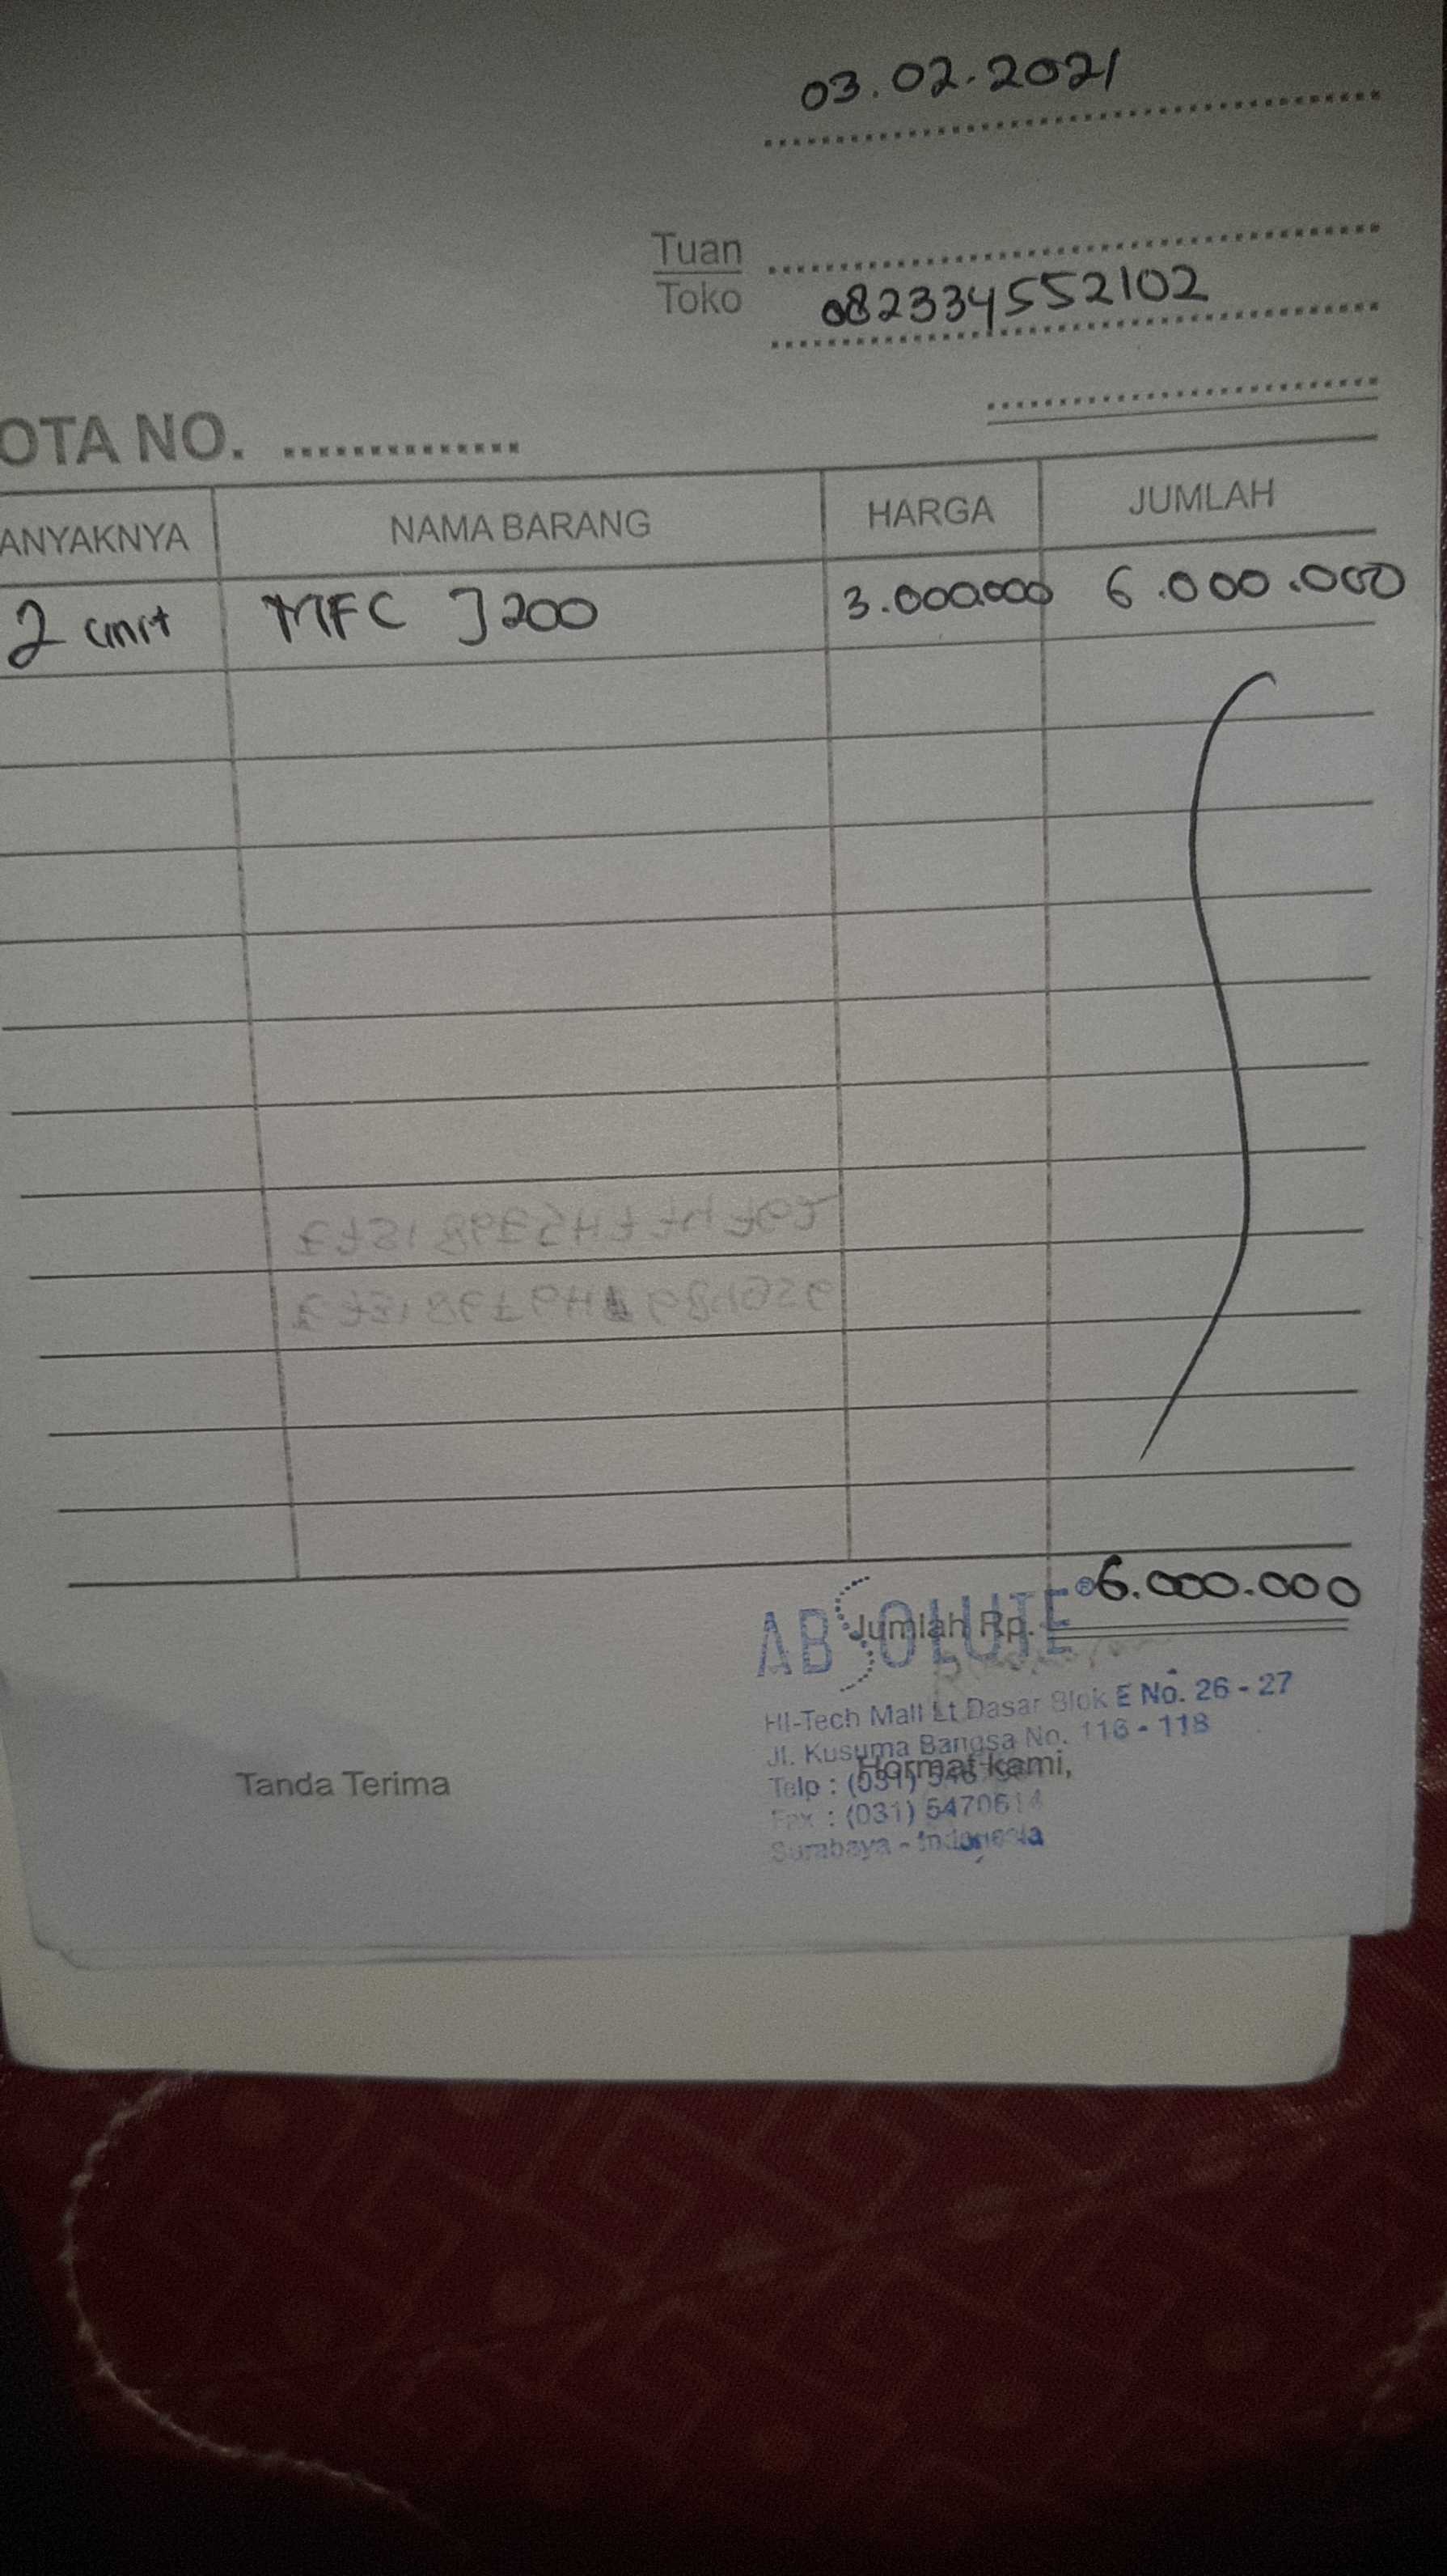 03.02.2021
Tuan
Toko 082334552102
OTA NO. ..............
ANYAKNYA NAMA BARANG HARGA JUMLAH
2 unit MFC J200 3.000.000 6.000.000
Jumlah Rp. 6.000.000
ABSOLUTE®
HI-Tech Mall Lt Dasar Blok E No. 26 - 27
Jl. Kusuma Bangsa No. 116 - 118
Tanda Terima
Hormat kami,
Telp : (031)
Fax : (031) 5470614
Surabaya - Indonesia